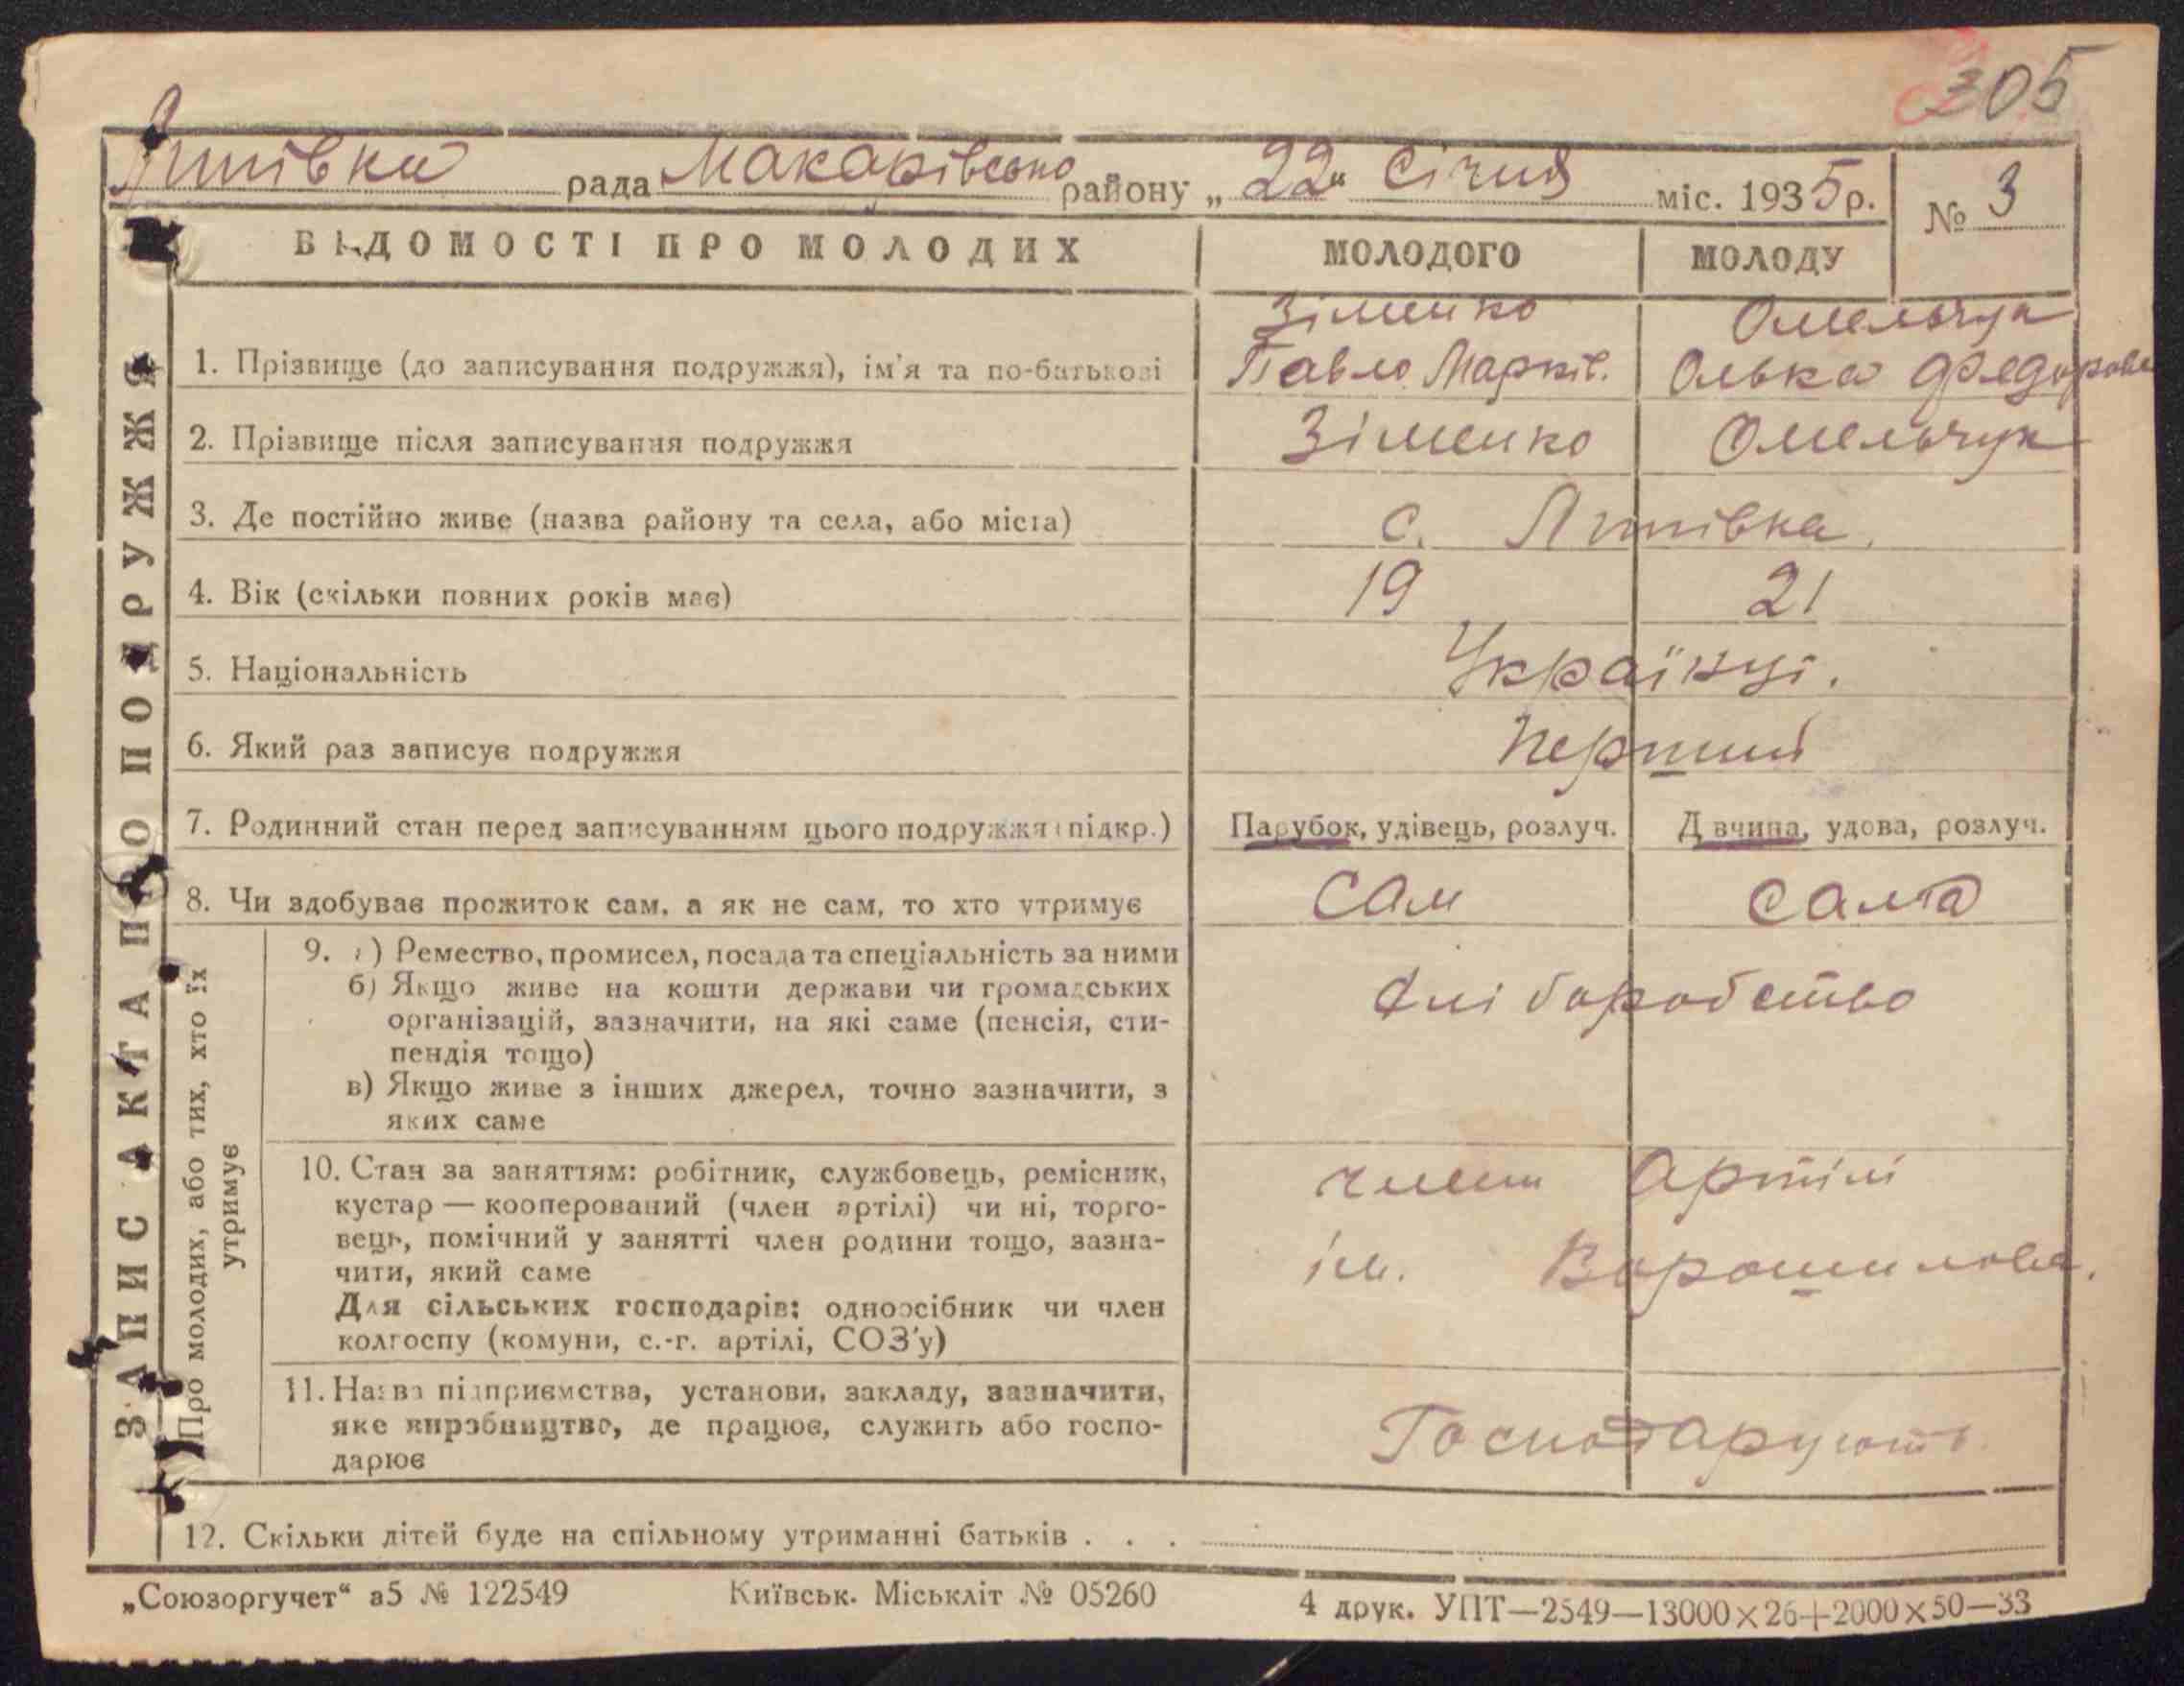 305
Липівка рада Макарівсько району „22“ Січня міс. 1935 р. № 3
ВІДОМОСТІ ПРО МОЛОДИХ МОЛОДОГО МОЛОДУ
Зіменко Омельчук
1. Прізвище (до записування подружжя), ім'я та по-батькові Павло Марків. Олька Федорова
2. Прізвище після записування подружжя Зіменко Омельчук
3. Де постійно живе (назва району та села, або міста) с. Липівка.
4. Вік (скільки повних років має) 19 21
5. Національність Українці.
6. Який раз записує подружжя Перший
7. Родинний стан перед записуванням цього подружжя (підкр.) Парубок, удівець, розлуч. Дівчина, удова, розлуч.
8. Чи здобуває прожиток сам, а як не сам, то хто утримує Сам Сама
9. а) Ремество, промисел, посада та спеціальність за ними
б) Якщо живе на кошти держави чи громадських Хліборобство
організацій, зазначити, на які саме (пенсія, сти-
пендія тощо)
в) Якщо живе з інших джерел, точно зазначити, з
яких саме
10. Стан за заняттям: робітник, службовець, ремісник, член Артілі
кустар — кооперований (член артілі) чи ні, торго-
вець, помічний у занятті член родини тощо, зазна- ім. Ворошилова.
чити, який саме
Для сільських господарів: одноосібник чи член
колгоспу (комуни, с.-г. артілі, СОЗ'у)
11. Назва підприємства, установи, закладу, зазначити,
яке виробництво, де працює, служить або госпо- Господарують
дарює
12. Скільки дітей буде на спільному утриманні батьків . . .
ЗАПИС АКТА ПРО ПОДРУЖЖЯ
Про молодих, або тих, хто їх
утримує
„Союзоргучет“ а5 № 122549 Київськ. Міськліт № 05260 4 друк. УПТ—2549—13000×26+2000×50—33